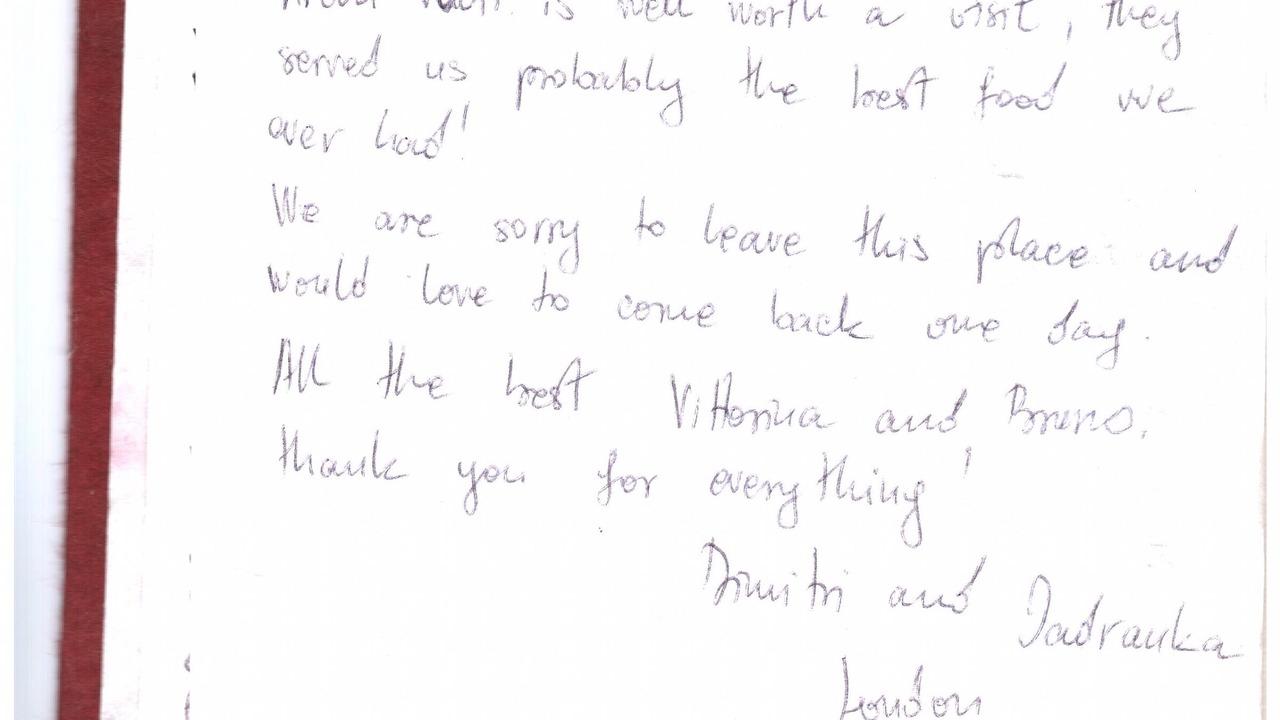 is well worth a visit, they
served us probably the best food we
ever had!
We are sorry to leave this place and
would love to come back one day.
All the best Vittorina and Bruno,
thank you for everything!
Dimitri and Jadranka
London